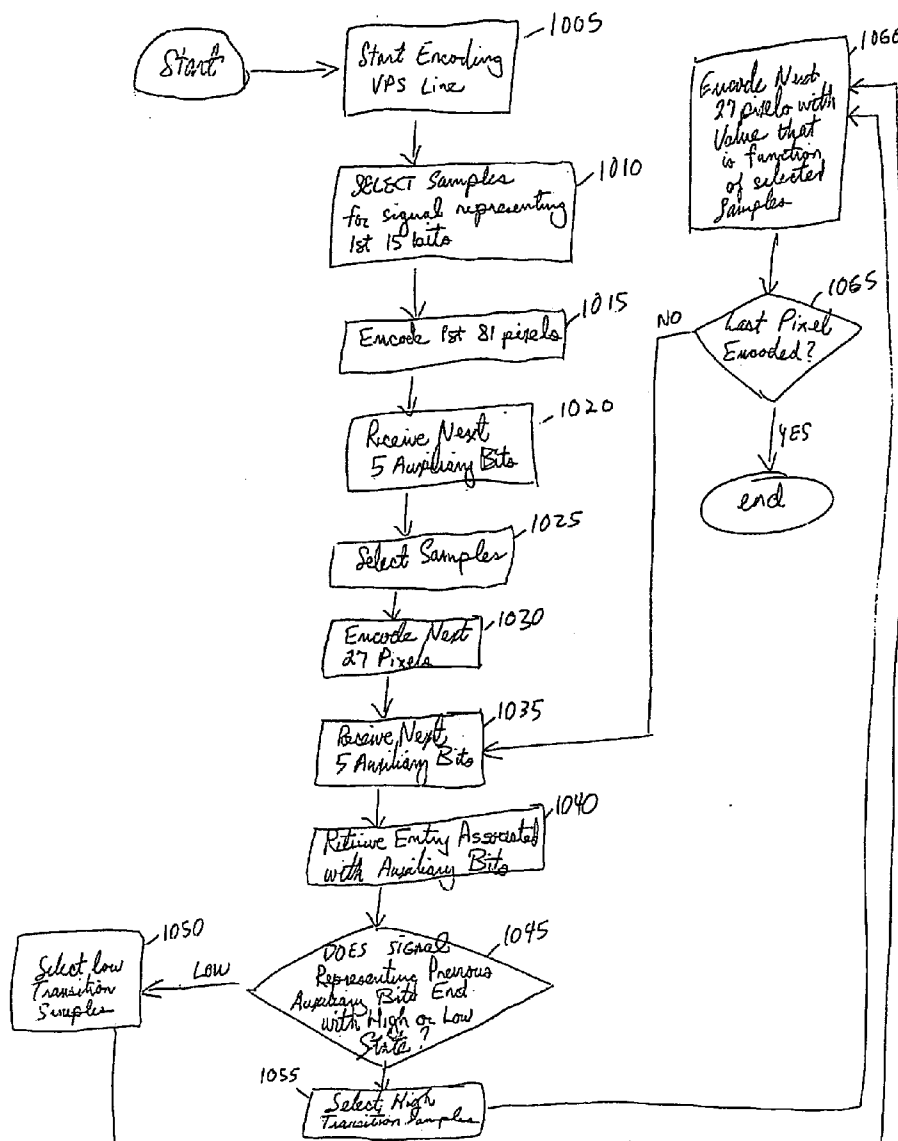 Start
1005
Start Encoding
VPS Line
1010
SELECT Samples
for signal representing
1st 15 bits
1015
Encode 1st 81 pixels
1020
Receive Next
5 Auxiliary Bits
1025
Select Samples
1030
Encode Next
27 Pixels
1035
Receive Next
5 Auxiliary Bits
1040
Retrieve Entry Associated
with Auxiliary Bits
1045
DOES SIGNAL
Representing Previous
Auxiliary Bits End
with High or Low
State?
LOW
1050
Select low
Transition
Samples
1055
Select High
Transition Samples
1060
Encode Next
27 pixels with
Value that
is function
of selected
Samples
1065
Last Pixel
Encoded?
NO
YES
end